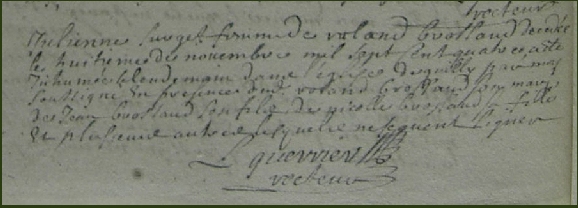 recteur
Julienne Surget femme de roland brossaud decedée
le huitieme de novembre mil sept cent quatre a esté
Inhumée le lendemain dans l'eglise par moy
soussigné En presence dud roland brossaud son mary
de Jean brossaud son fils de nicolle brossaud sa fille
Et plusieurs autres lesquels ne scavent signer
L guerrier
recteur